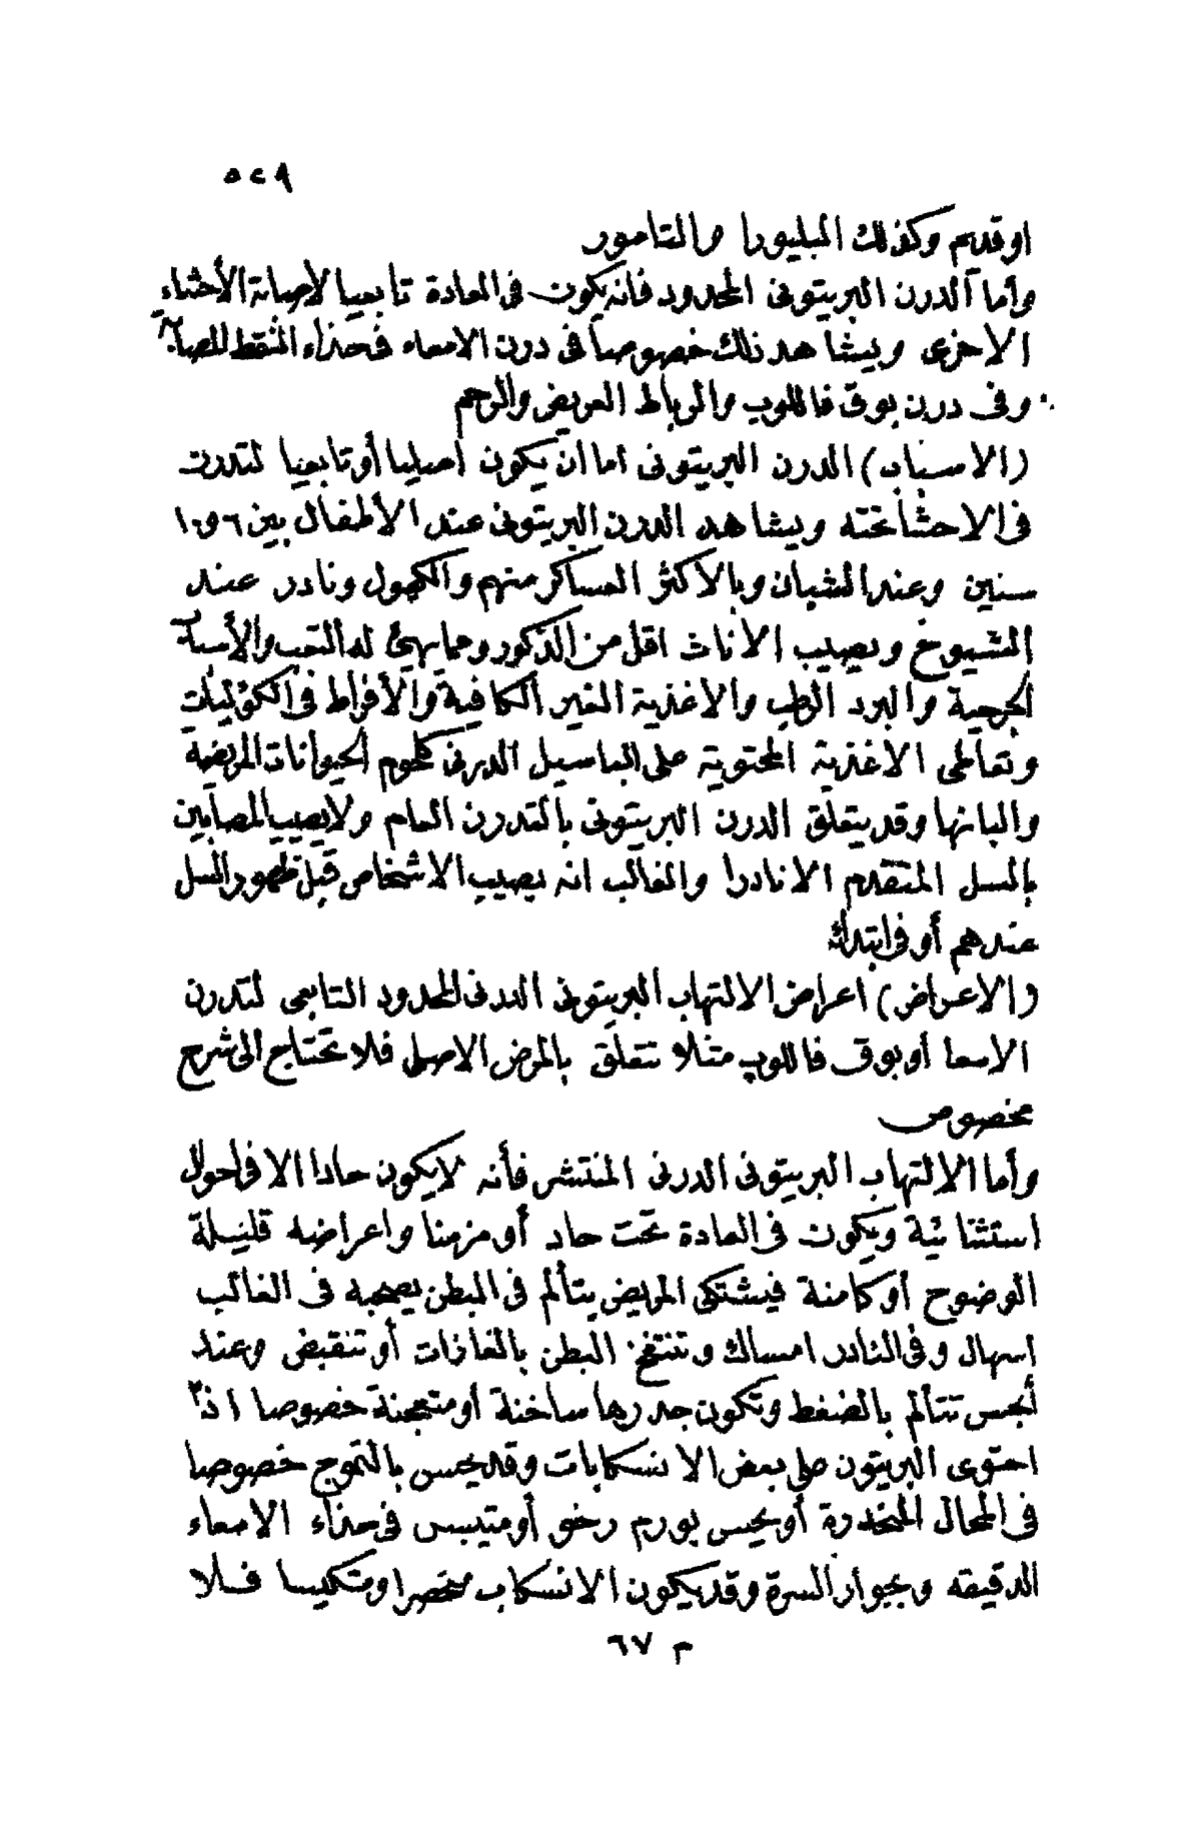 ٥٢٩
او قديم وكذلك البليورا والتامور
وأما الدرن البريتونى المحدود فانه يكون فى العادة تابعيا لاصابة الأحشاء
الاخرى ويشاهد ذلك خصوصا فى درن الامعاء فحذاء النقط المصابة
وفى درن بوق فاللوب والرباط العريض والرحم
(الاسباب) الدرن البريتونى اما ان يكون اصليا أو تابعيا لتدرن
فى الاحشأ تحته ويشاهد الدرن البريتونى عند الأطفال بين ٦ و ١٠
سنين وعند الشبان وبالاكثر العساكر منهم والكهول ونادر عند
الشيوخ ويصيب الاناث اقل من الذكور ومما يهيئ له التعب والأسباب
الجرحية والبرد الرطب والاغذية الغير الكافية والافراط فى الكؤليات
وتعاطى الاغذية المحتوية على الباسيل الدرنى كلحوم الحيوانات المريضة
والبانها وقد يتعلق الدرن البريتونى بالتدرن العام ولا يصيب المصابين
بالسل المتقدم الا نادرا والغالب انه يصيب الاشخاص قبل ظهور السل
عندهم أو فى ابتدائه
(الاعراض) اعراض الالتهاب البريتونى الدرنى المحدود التابعى لتدرن
الامعا أو بوق فاللوب مثلا تتعلق بالمرض الاصلى فلا تحتاج الى شرح
مخصوص
وأما الالتهاب البريتونى الدرنى المنتشر فأنه لا يكون حادا الا فى احوال
استثنائية ويكون فى العادة تحت حاد أو مزمنا واعراضه قليلة
الوضوح أو كامنة فيشتكى المريض بتألم فى البطن يصحبه فى الغالب
اسهال وفى النادر امساك وتنتفخ البطن بالغازات أو تنقبض وعند
الجس تتألم بالضغط وتكون جدرها ساخنة أو متعجنة خصوصا اذا
احتوى البريتون على بعض الانسكابات وقد يحس بالتموج خصوصا
فى المحال المنحدرة أو يحس بورم رخو أو متيبس فى حذاء الامعاء
الدقيقه وبجوار السرة وقد يكون الانسكاب منحصرا ومتكيسا فلا
م ٦٧